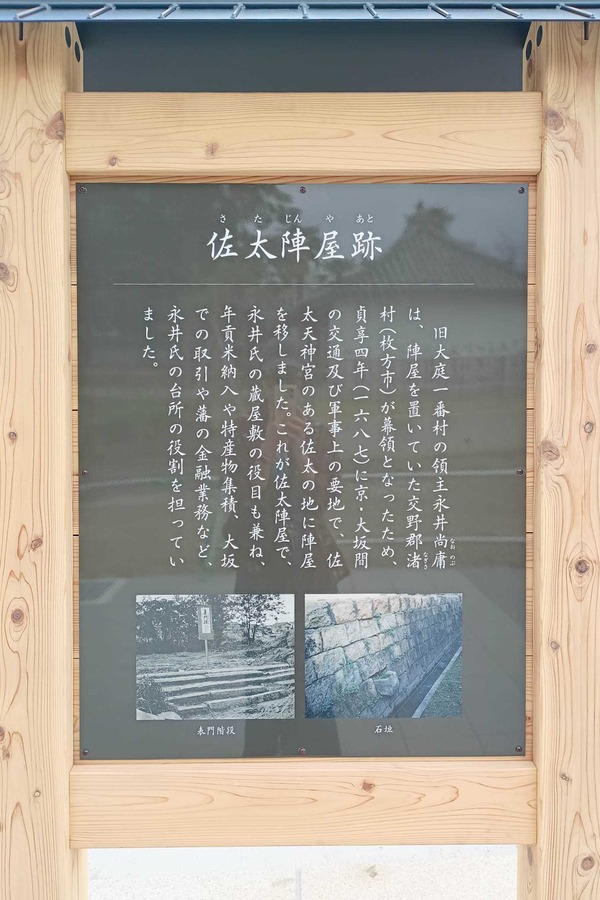 さ た じん や あと
佐太陣屋跡
旧大庭一番村の領主永井尚庸
なお のぶ
は、陣屋を置いていた交野郡渚
なぎさ
村(枚方市)が幕領となったため、
貞享四年(一六八七)に京・大坂間
の交通及び軍事上の要地で、佐
太天神宮のある佐太の地に陣屋
を移しました。これが佐太陣屋で、
永井氏の蔵屋敷の役目も兼ね、
年貢米納入や特産物集積、大坂
での取引や藩の金融業務など、
永井氏の台所の役割を担ってい
ました。
表門階段
石垣